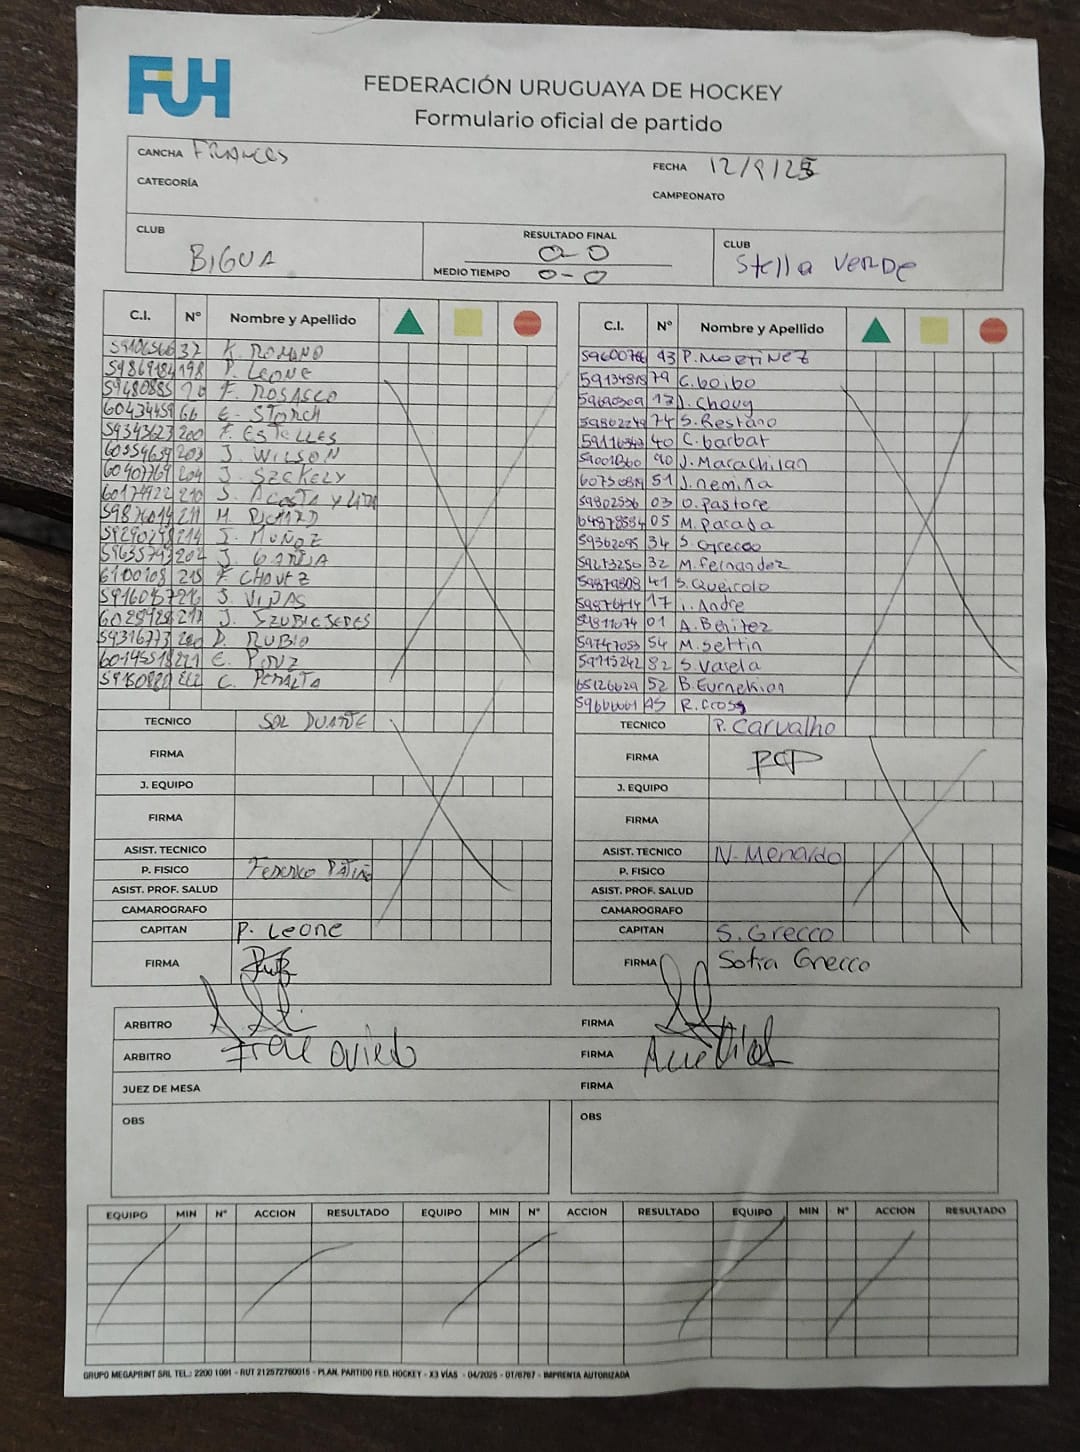 FUH
FEDERACIÓN URUGUAYA DE HOCKEY
Formulario oficial de partido
CANCHA FRANCES
FECHA 12/9/25
CATEGORÍA
CAMPEONATO
CLUB BIGUA
RESULTADO FINAL 0-0
MEDIO TIEMPO 0-0
CLUB Stella VERDE
C.I. N° Nombre y Apellido
32 K. ROMANO
198 P. LEONE
F. ROSASCO
60434459 66 E. STORCH
59343623 200 F. ESTELLES
J. WILSON
60407769 204 J. SZEKELY
60174922 210 S.
211 M. PICHARD
214 J. MUÑOZ
J. GARCIA
F. CHOVEZ
S. VIÑAS
J. SZUBICSEPES
59316773 D. RUBIO
221 E. PONZ
222 C. PERALTA
TECNICO SOL DUARTE
FIRMA
J. EQUIPO
FIRMA
ASIST. TECNICO
P. FISICO FEDERICO PATIÑO
ASIST. PROF. SALUD
CAMAROGRAFO
CAPITAN P. Leone
FIRMA
C.I. N° Nombre y Apellido
93 P. MARTINEZ
79 C. boibo
13 J. Chouy
74 S. Restano
40 C. barbat
90 J. Marachlian
51 J. nemiña
59802536 03 O. Pastore
64878584 05 M. Parada
59362095 34 S. Grecco
59273250 32 M. Fernandez
59879808 41 S. Queirolo
17 L. Andre
01 A. Benitez
59747053 54 M. Settin
59715242 82 S. Varela
65126629 52 B. Eurnekian
45 R. Cross
TECNICO P. Carvalho
FIRMA PCP
J. EQUIPO
FIRMA
ASIST. TECNICO N. Menardo
P. FISICO
ASIST. PROF. SALUD
CAMAROGRAFO
CAPITAN S. Grecco
FIRMA Sofia Grecco
ARBITRO FIRMA
ARBITRO Oviedo FIRMA
JUEZ DE MESA FIRMA
OBS OBS
EQUIPO MIN N° ACCION RESULTADO EQUIPO MIN N° ACCION RESULTADO EQUIPO MIN N° ACCION RESULTADO
GRUPO MEGAPRINT SRL TEL.: 2200 1091 - RUT 212572760015 - PLAN. PARTIDO FED. HOCKEY - X3 VÍAS - 04/2025 - 01/6767 - IMPRENTA AUTORIZADA